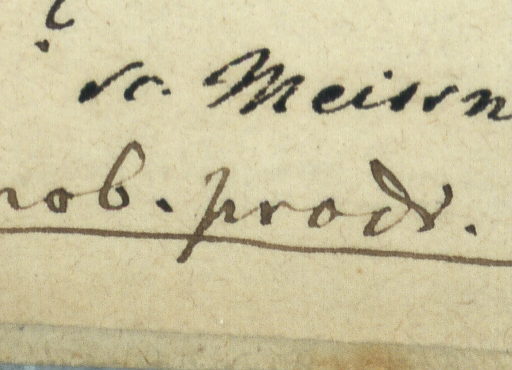 sc. Meissn
nob. prodr.